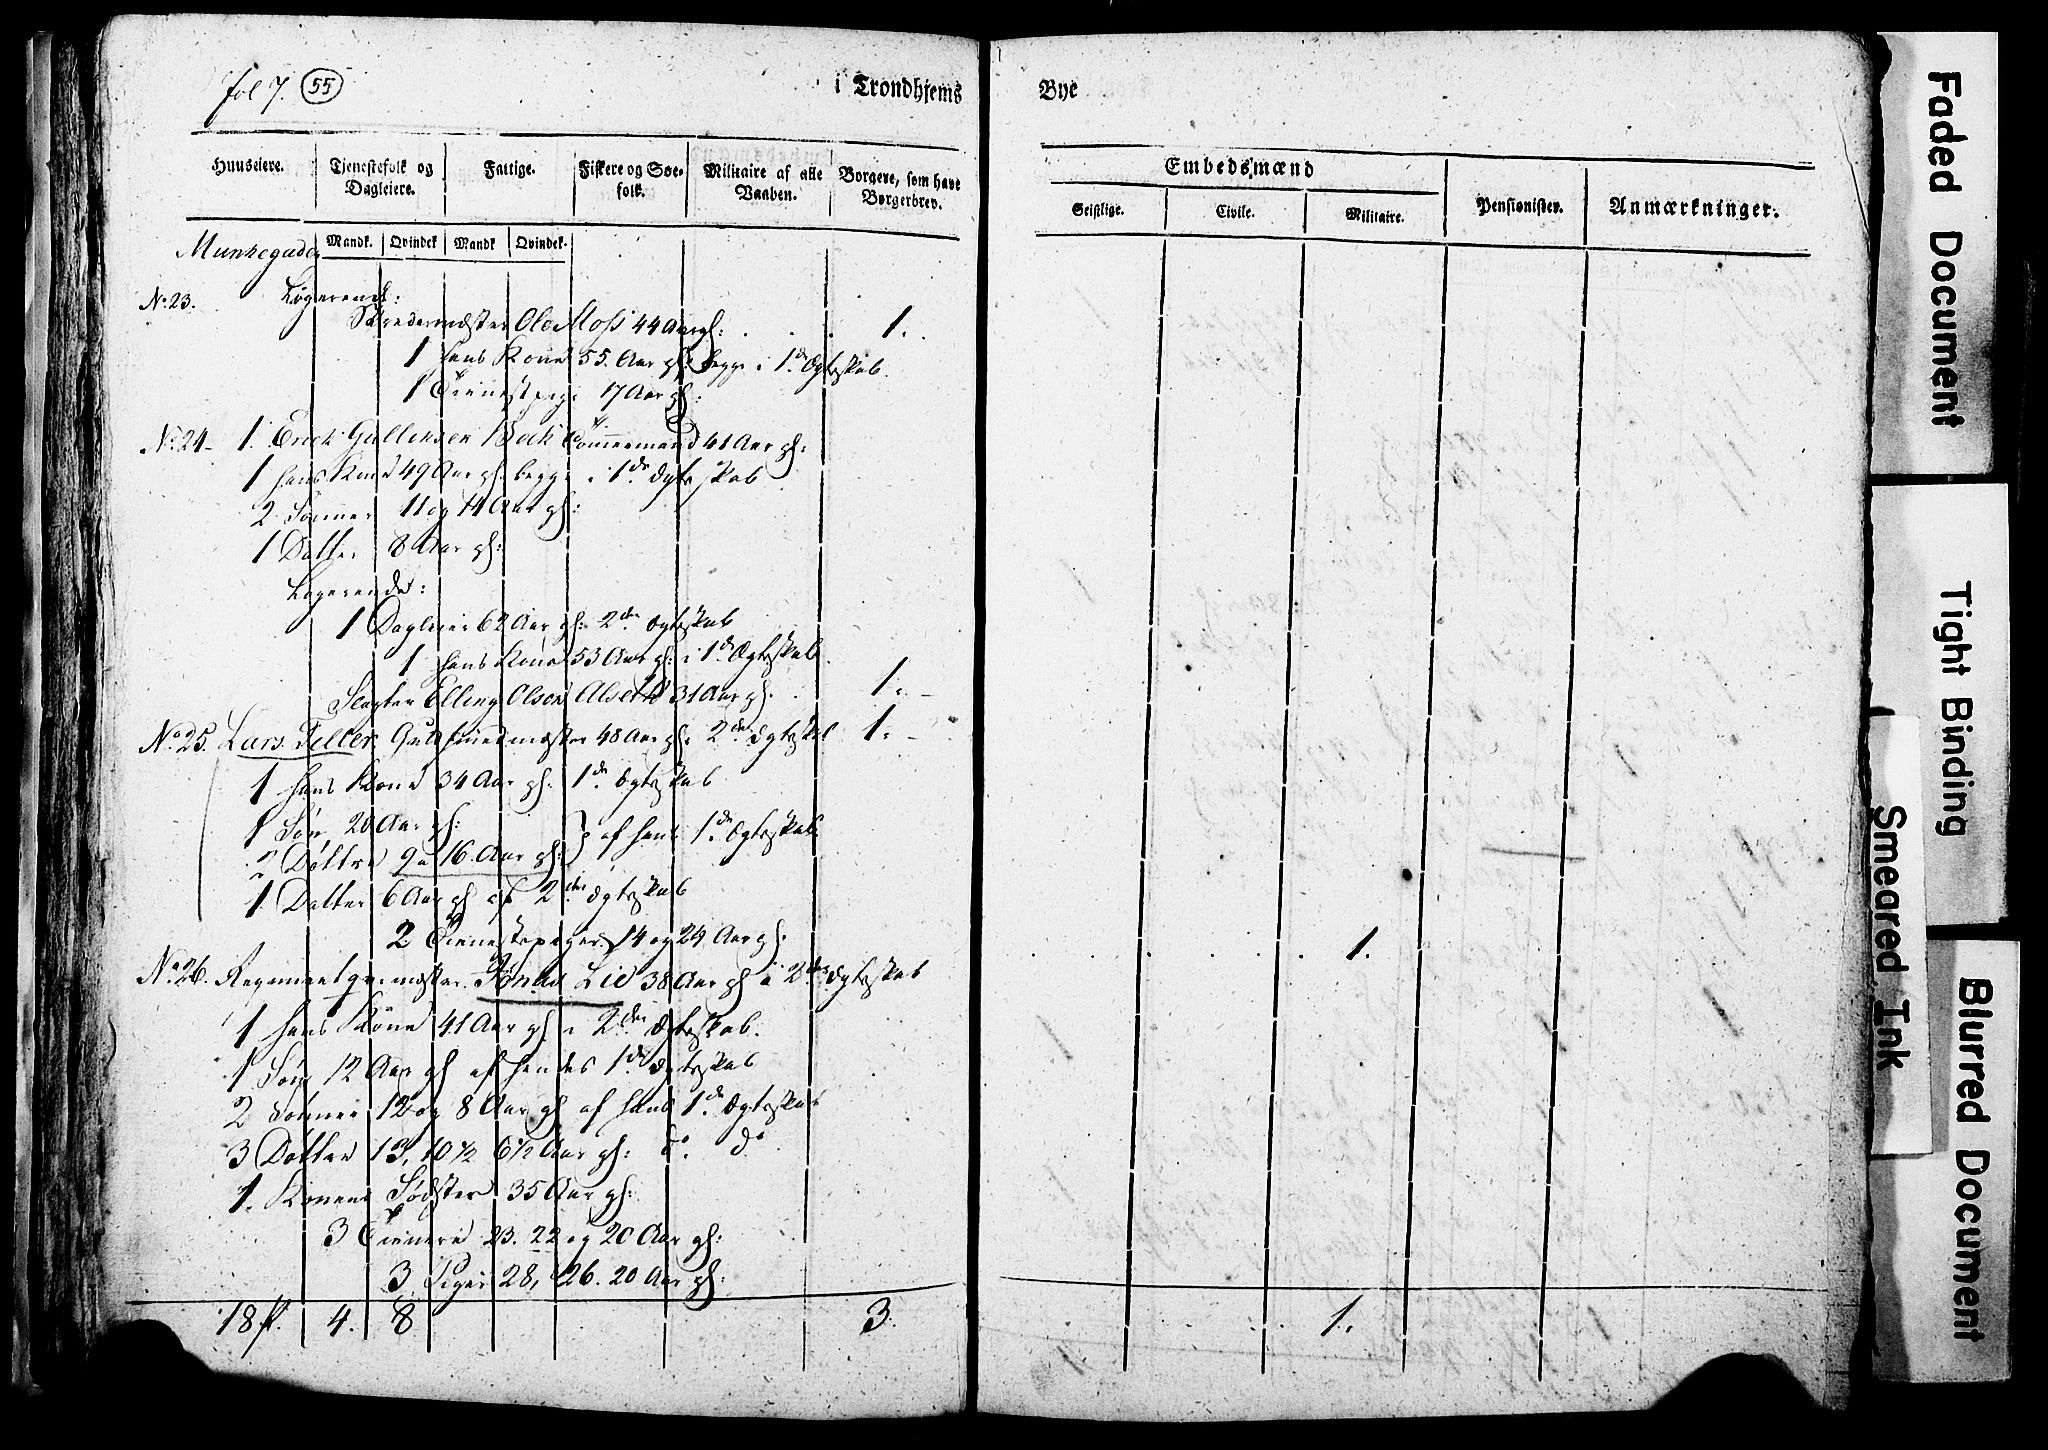 fol 7. 55
i Trondhjems Bye
Huuseiere. Tjenestefolk og Dagleiere. Fattige. Fiskere og Søefolk. Militaire af alle Vaaben. Borgere, som have Borgerbrev.
Embedsmænd
Geistlige. Civile. Militaire. Pensionister. Anmærkninger.
Mandk. Qvindek Mandk Qvindek.
Munkegaden
No. 23. Logerende:
Skredermester Ole Moss 44 Aar gl: . . . 1.
1 hans Kone 55. Aar gl: begge i 1de Ægteskab.
1 Tienestpige 17 Aar gl:
No. 24 1. Erich Gullensen Bech Tømmermand 41 Aar gl:
1 hans Kone 49 Aar gl. begge i 1de Ægteskab
2 Sønner 11 og 14 Aar gl:
1 Datter 8 Aar gl:
Logerende:
1 Dagleier 62 Aar gl: 2det Ægteskab
1 hans Kone 53 Aar gl: i 1de Ægteskab
Slagter Elling Olsen 31 Aar gl. . 1.
No. 25. Lars Feller Guldsmedmester 48 Aar gl. 2det Ægteskab 1.
1 hans Kone 34 Aar gl. 1de Ægteskab
1 Søn 20 Aar gl: } af hans 1de Ægteskab
2 Døttre 9 16. Aar gl:
1. Datter 6 Aar gl af 2det Ægteskab
2 Tienestepiger 14 og 24 Aar gl:
No. 26. Regimentqvarmester Lie 38 Aar gl i 2det Ægteskab . . . 1.
1 hans Kone 41 Aar gl. i 2det Ægteskab.
1 Søn 12 Aar gl af hendes 1de Ægteskab
2 Sønner 12 og 8 Aar gl af hans 1de Ægteskab
3 Døttre 13, 10½ 6½ Aar gl: do. do
1. Konens Sødster 35 Aar gl:
3 Tienere 23. 22 og 20 Aar gl:
3 Piger 28, 26. 20 Aar gl:
18 4. 8 3. 1.
Faded Document
Tight Binding
Smeared Ink
Blurred Document